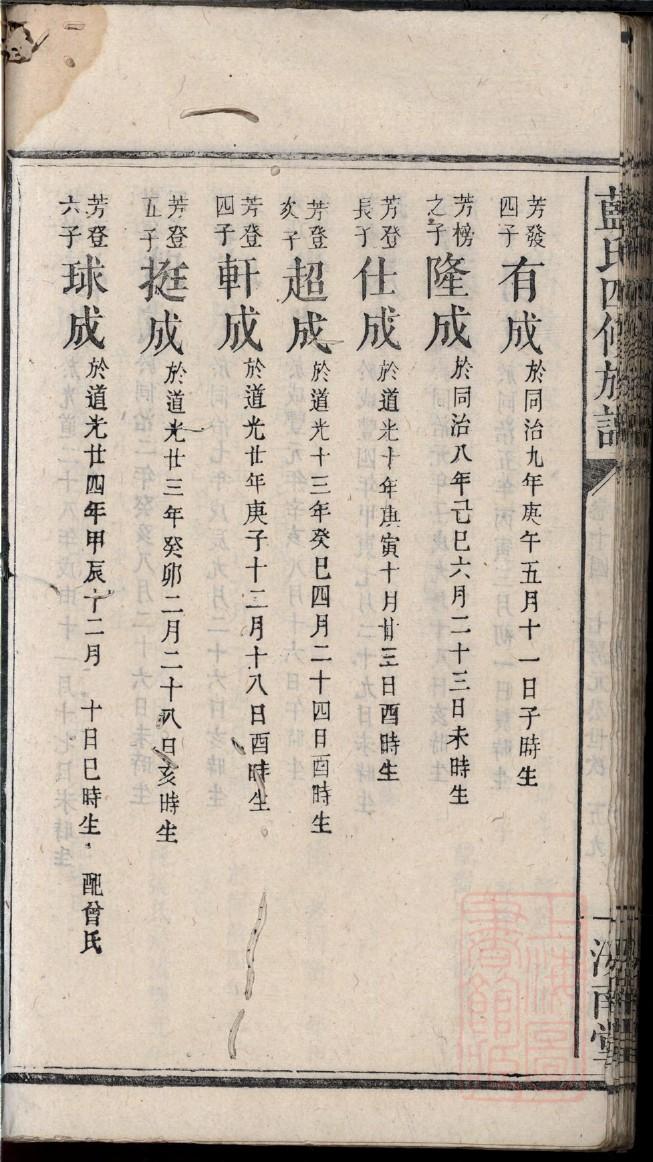 藍氏四修族譜
芳發四子 有成 於同治九年庚午五月十一日子時生
芳榜之子 隆成 於同治八年己巳六月二十三日未時生
芳登長子 仕成 於道光十年庚寅十月廿三日酉時生
芳登次子 超成 於道光十三年癸巳四月二十四日酉時生
芳登四子 軒成 於道光廿年庚子十二月十八日酉時生
芳登五子 挺成 於道光廿三年癸卯二月二十八日亥時生
芳登六子 球成 於道光廿四年甲辰十二月 十日巳時生 配曾氏
上海圖書館藏